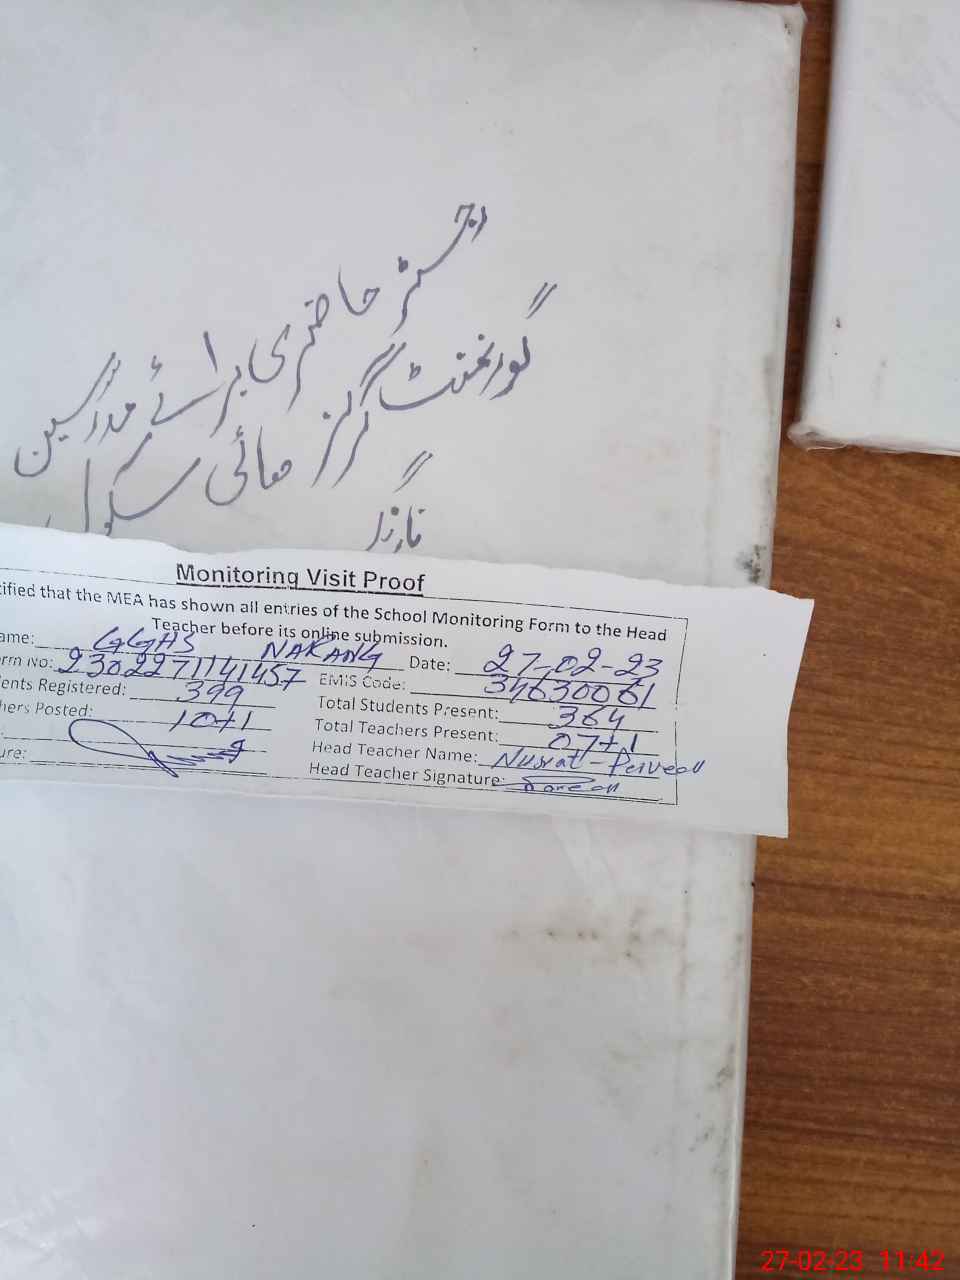 رجسٹر حاضری برائے مدرسین
گورنمنٹ گرلز ہائی سکول
نارنگ
Monitoring Visit Proof
tified that the MEA has shown all entries of the School Monitoring Form to the Head
Teacher before its online submission.
ame: GGHS NARANG Date: 27-02-23
orm No: 2302271141457 EMIS Code: 34630061
ents Registered: 399 Total Students Present: 364
hers Posted: 10+1 Total Teachers Present: 07+1
Head Teacher Name: Nusrat-Perveen
ure: Head Teacher Signature:
27-02-23 11:42